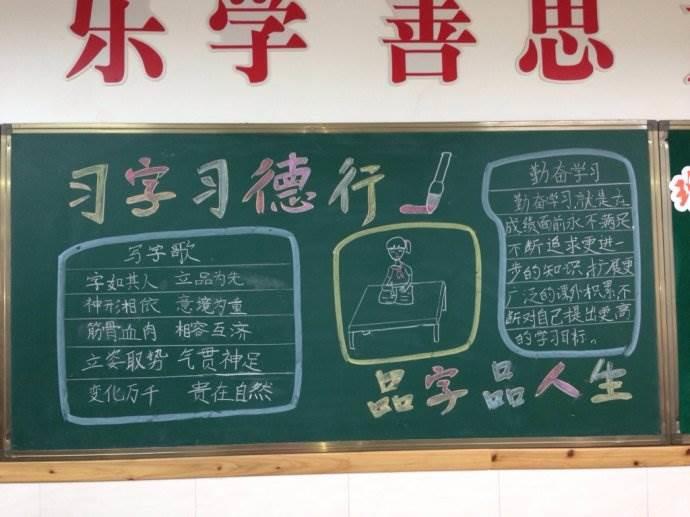 乐学善思
习字习德行
写字歌
字如其人 立品为先
神形相依 意境为重
筋骨血肉 相容互济
立姿取势 气贯神足
变化万千 贵在自然
勤奋学习
勤奋学习就是在
成绩面前永不满足
不断追求更进一
步的知识,扩展更
广泛的课外积累不
断对自己提出更高
的学习目标。
品字品人生